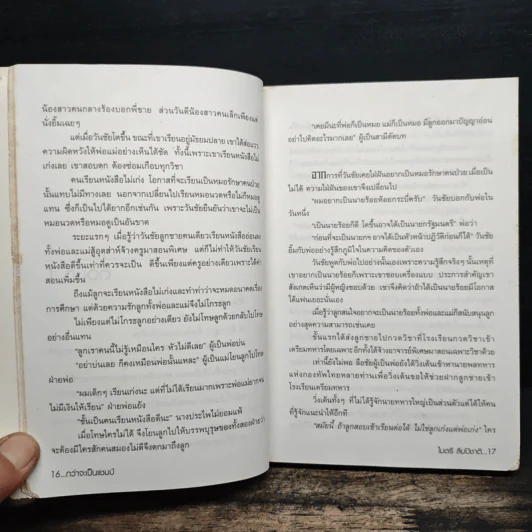 น้องสาวคนกลางร้องบอกพี่ชาย ส่วนวันดีน้องสาวคนเล็กเพียงแต่
นั่งยิ้มเฉยๆ
แต่เมื่อวันชัยโตขึ้น ขณะที่เขาเรียนอยู่มัธยมปลาย เขาได้ส่อแวว
ความผิดหวังให้พ่อแม่อย่างเห็นได้ชัด ทั้งนี้เพราะเขาเรียนหนังสือไม่
เก่งเลย เขาสอบตก ต้องซ่อมเกือบทุกวิชา
คนเรียนหนังสือไม่เก่ง โอกาสที่จะเรียนเป็นหมอรักษาคนป่วย
นั้นแทบไม่มีทางเลย นอกจากเปลี่ยนไปเรียนหมอนวดหรือไม่ก็หมอดู
แทน ซึ่งก็เป็นไปได้ยากอีกเช่นกัน เพราะวันชัยยืนยันว่าเขาจะไม่เป็น
หมอนวดหรือหมอดูเป็นอันขาด
ระยะแรกๆ เมื่อรู้ว่าวันชัยลูกชายคนเดียวเรียนหนังสืออ่อน
ทั้งพ่อและแม่สู้อุตส่าห์จ้างครูมาสอนพิเศษ แต่ก็ไม่ทำให้วันชัยเรียน
หนังสือดีขึ้นเท่าที่ควรจะเป็น ดีขึ้นเพียงแค่ครูอย่างเดียวเพราะได้ค่า
สอนเพิ่มขึ้น
ถึงแม้ลูกจะเรียนหนังสือไม่เก่งและทำท่าว่าจะหมดอนาคตเรื่อง
การศึกษา แต่ด้วยความรักลูกทั้งพ่อและแม่จึงไม่โกรธลูก
ไม่เพียงแต่ไม่โกรธลูกอย่างเดียว ยังไม่โทษลูกด้วยกลับไปโทษ
อย่างอื่นแทน
"ลูกเราคนนี้ไม่รู้เหมือนใคร หัวไม่ดีเลย" ผู้เป็นพ่อบ่น
"อย่าบ่นเลย ก็คงเหมือนพ่อนั้นแหละ" ผู้เป็นแม่โยนลูกไปโทษ
ฝ่ายพ่อ
"ผมเด็กๆ เรียนเก่งนะ แต่ที่ไม่ได้เรียนมากเพราะพ่อแม่ยากจน
ไม่มีเงินให้เรียน" ฝ่ายพ่อแย้ง
"ฉันเป็นคนเรียนหนังสือดีนะ" นางประไพไม่ยอมแพ้
เมื่อโทษใครไม่ได้ จึงโยนลูกไปให้บรรพบุรุษของทั้งสองฝ่ายว่า
จะต้องมีใครสักคนสมองไม่ดีจึงตกมาถึงลูก
16...กว่าจะเป็นแชมป์
"เคยมีนะที่พ่อก็เป็นหมอ แม่ก็เป็นหมอ มีลูกออกมาปัญญาอ่อน
อย่าไปคิดอะไรมากเลย" ผู้เป็นสามีตัดบท
จากการที่วันชัยเคยใฝ่ฝันอยากเป็นหมอรักษาคนป่วย เมื่อเป็น
ไม่ได้ ความใฝ่ฝันของเขาจึงเปลี่ยนไป
"ผมอยากเป็นนายร้อยห้อยกระบี่ครับ" วันชัยบอกกับพ่อใน
วันหนึ่ง
"เป็นนายร้อยก็ดี โตขึ้นอาจได้เป็นนายกรัฐมนตรี" พ่อว่า
"ก่อนที่จะเป็นนายกฯ อาจได้เป็นหัวหน้าปฏิวัติก่อนก็ได้" วันชัย
ยิ้มกับพ่ออย่างรู้สึกภูมิใจในความคิดของตัวเอง
วันชัยพูดกับพ่อไปอย่างนั้นเองเพราะความรู้สึกจริงๆ นั้นเหตุที่
เขาอยากเป็นนายร้อยก็เพราะเขาชอบเครื่องแบบ ประการสำคัญเขา
สังเกตเห็นว่ามีผู้หญิงชอบด้วย เขาจึงคิดว่าถ้าได้เป็นนายร้อยมีโอกาส
ได้แฟนเยอะนั่นเอง
เมื่อรู้ว่าลูกสนใจอยากจะเป็นนายร้อยทั้งพ่อและแม่ก็สนับสนุนลูก
อย่างสุดความสามารถเช่นเคย
ขั้นแรกได้ส่งลูกชายไปกวดวิชาที่โรงเรียนกวดวิชาเข้า
เตรียมทหารโดยเฉพาะอีกทั้งได้จ้างอาจารย์พิเศษมาสอนเฉพาะวิชาด้วย
เท่านี้ยังไม่พอ ลือชัยผู้เป็นพ่อยังได้วิ่งเต้นเข้าหานายพลทหาร
แห่งกองทัพไทยหลายท่านเพื่อวิ่งเต้นขอให้ช่วยฝากลูกชายเข้า
โรงเรียนเตรียมทหาร
วิ่งเต้นทั้งๆ ที่ไม่ได้รู้จักนายทหารใหญ่เป็นส่วนตัวแต่ได้ให้คน
ที่รู้จักแนะนำให้อีกที
"สมัยนี้ ถ้าลูกสอบเข้าเรียนต่อได้ ไม่ใช่ลูกเก่งแต่พ่อเก่ง" ใคร
ไมตรี ลิมปิชาติ...17